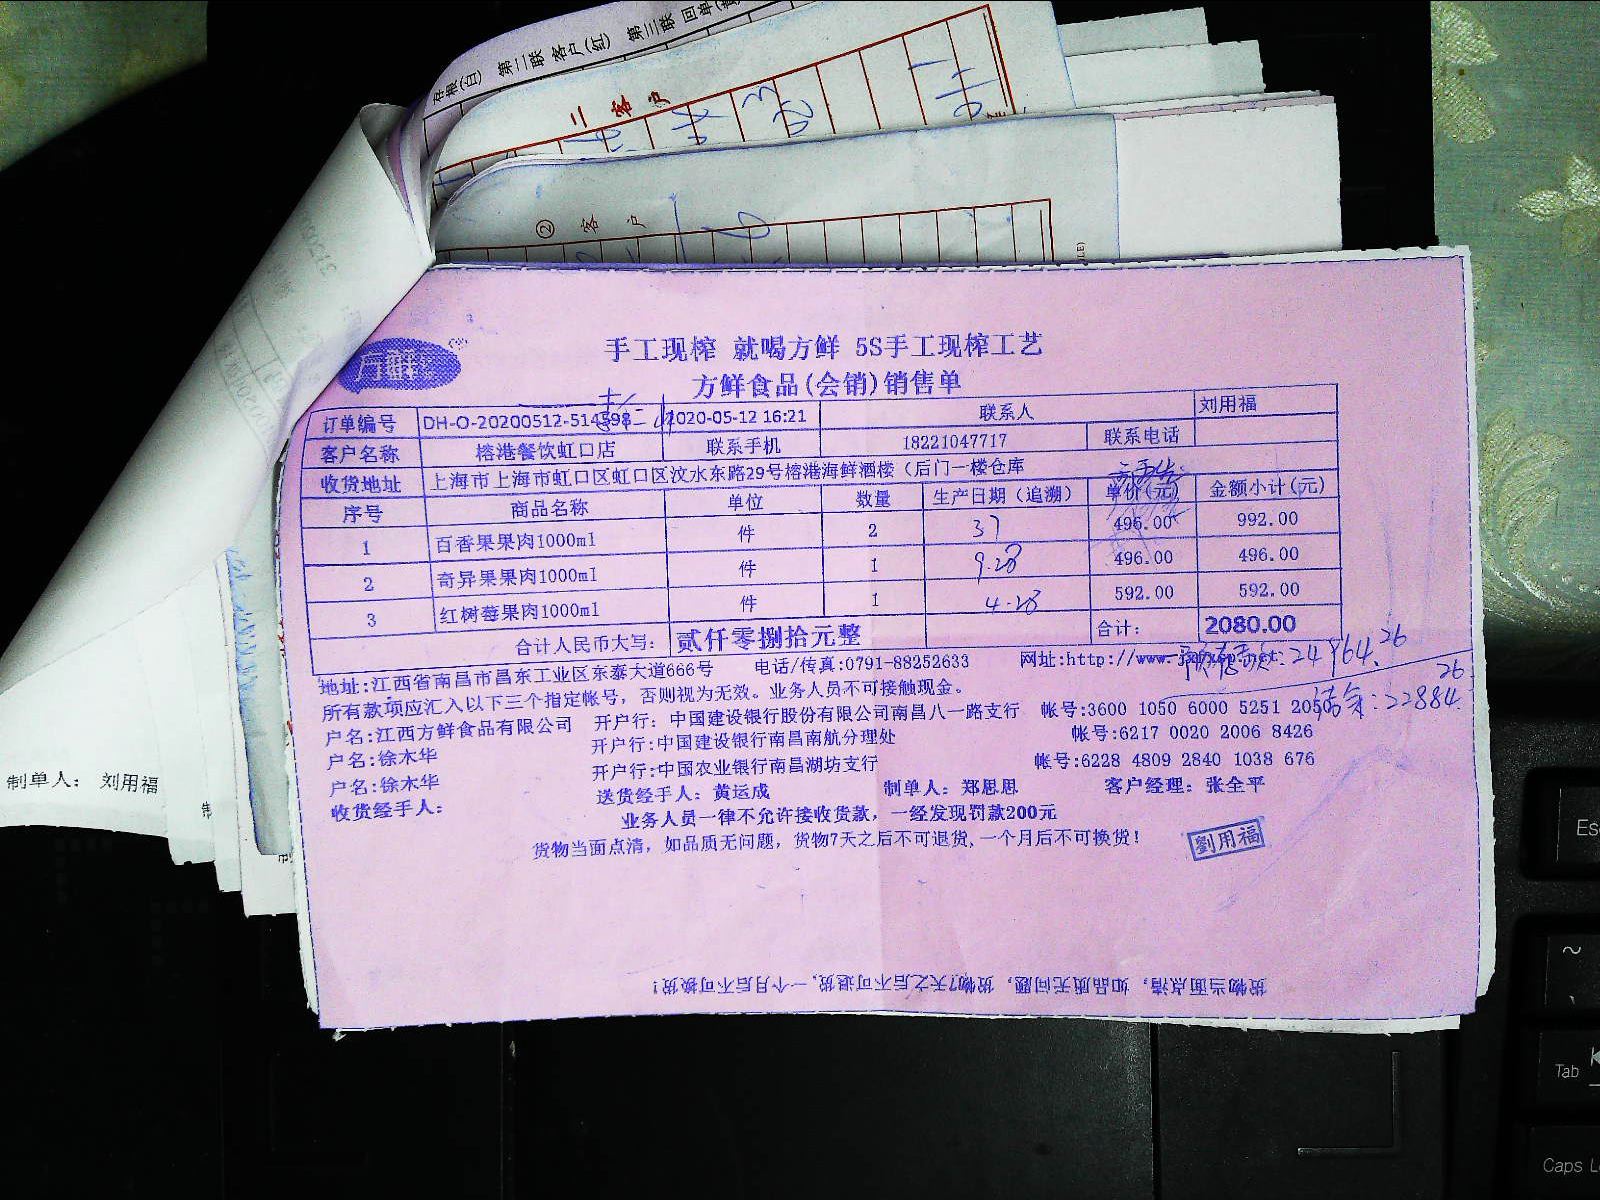 存根(白) 第二联 客户(红) 第三联 回单(
二 客 户
② 客 户
手工现榨 就喝方鲜 5S手工现榨工艺
方鲜
方鲜食品(会销)销售单
订单编号 DH-O-20200512-514598 2020-05-12 16:21 联系人 刘用福
客户名称 榕港餐饮虹口店 联系手机 18221047717 联系电话
收货地址 上海市上海市虹口区虹口区汶水东路29号榕港海鲜酒楼（后门一楼仓库
序号 商品名称 单位 数量 生产日期（追溯） 单价(元) 金额小计(元)
1 百香果果肉1000ml 件 2 37 496.00 992.00
2 奇异果果肉1000ml 件 1 9.28 496.00 496.00
3 红树莓果肉1000ml 件 1 4.28 592.00 592.00
合计人民币大写: 贰仟零捌拾元整 合计: 2080.00
地址:江西省南昌市昌东工业区东泰大道666号 电话/传真:0791-88252633 网址:http://www.
所有款项应汇入以下三个指定帐号，否则视为无效。业务人员不可接触现金。
户名:江西方鲜食品有限公司 开户行: 中国建设银行股份有限公司南昌八一路支行 帐号:3600 1050 6000 5251 2050
22884.26
户名:徐木华 开户行:中国建设银行南昌南航分理处 帐号:6217 0020 2006 8426
户名:徐木华 开户行:中国农业银行南昌湖坊支行 帐号:6228 4809 2840 1038 676
收货经手人: 送货经手人: 黄运成 制单人: 郑思思 客户经理: 张全平
业务人员一律不允许接收货款，一经发现罚款200元
货物当面点清，如品质无问题，货物7天之后不可退货,一个月后不可换货!
劉用福
货物当面点清，如品质无问题，货物7天之后不可退货,一个月后不可换货!
制单人: 刘用福
Esc
~
Tab
Caps L